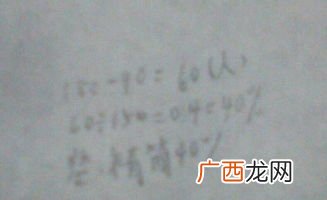 150-90=60(人)
60÷150=0.4=40%
答:精简40%
广西龙网